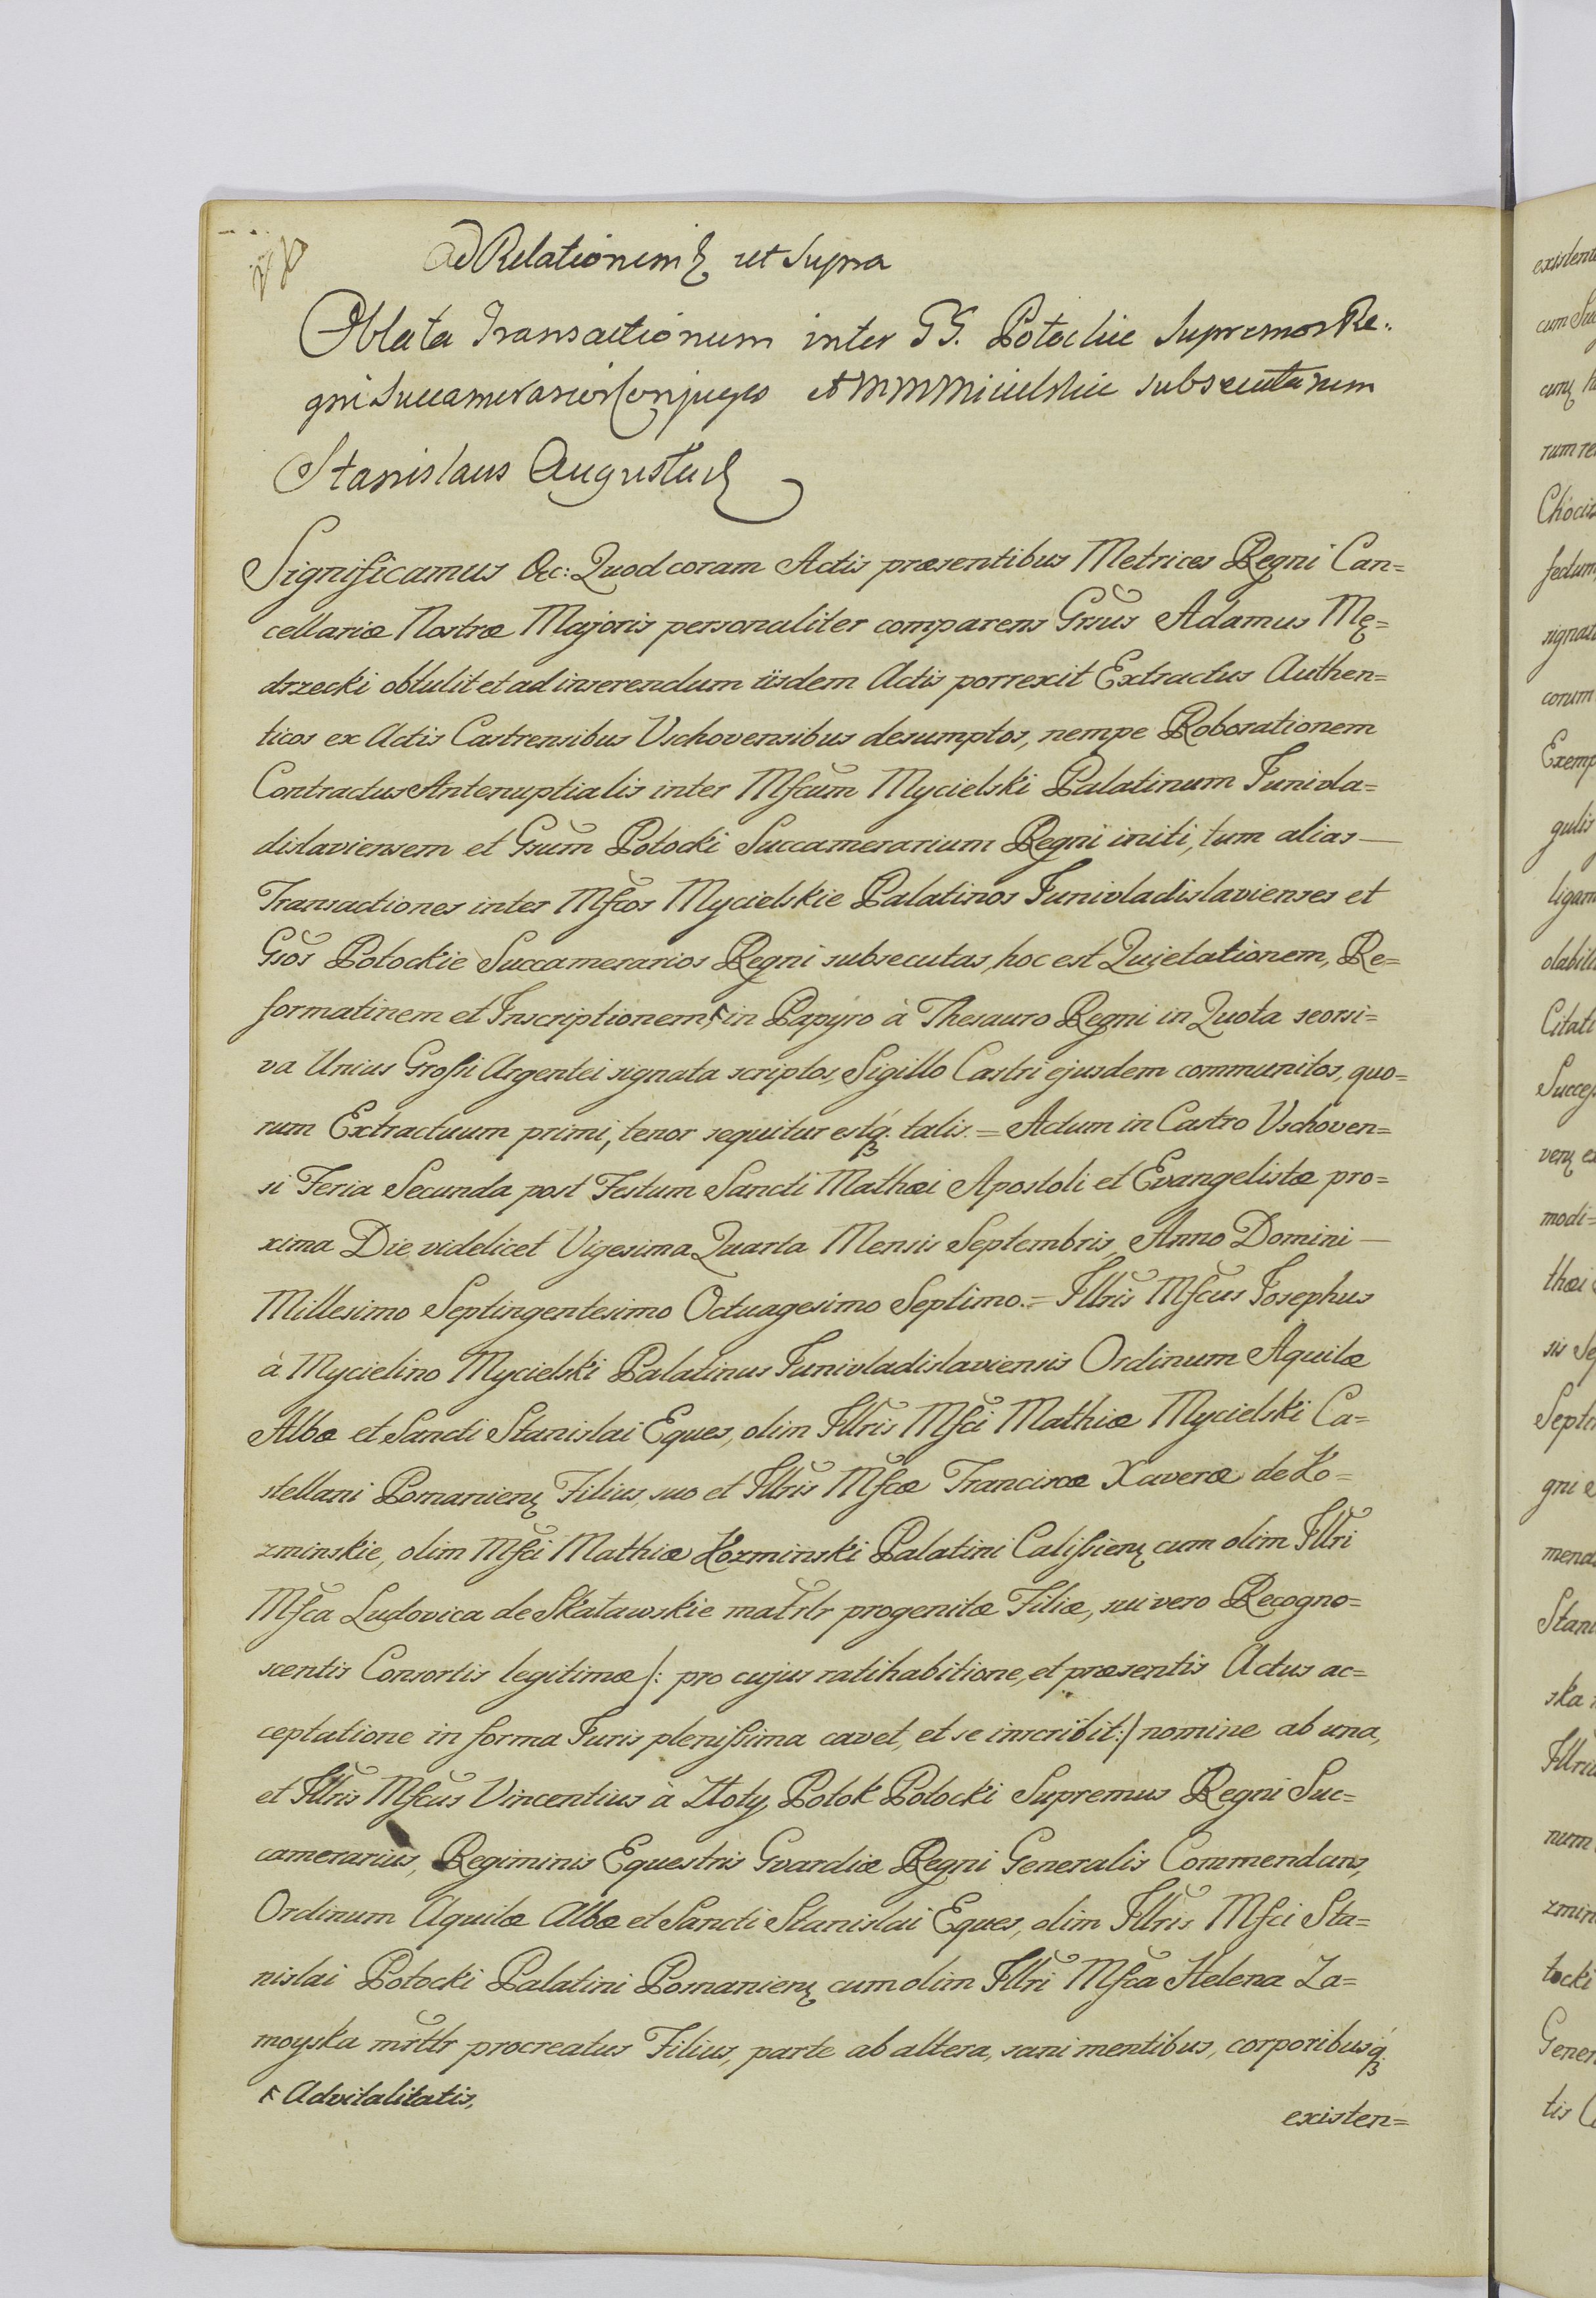 Ad Relationem ut Supra
Oblata Transactionum inter GG. Potockie Supremos Re:
gni Succamerarios Conjuges et MM Micielskie subsecutarum
Stanislaus Augustus
Significamus &c: Quod coram Actis præsentibus Metrices Regni Can=
cellariæ Nostræ Majoris personaliter comparens Gnsus Adamus Mę=
drzecki obtulit et ad inserendum iisdem Actis porrexit Extractus Authen=
ticos ex Actis Castrensibus Vschovensibus desumptos, nempe Roborationem
Contractus Antenuptialis inter Mfcum Mycielski Palatinum Junivla=
dislaviensem et Gsum Potocki Succamerarium Regni initi, tum alias —
Transactiones inter Mfcos Mycielskie Palatinos Junivladislavienses et
Gsos Potockie Succamerarios Regni subsecutas, hoc est Quietationem, Re=
formatinem et Inscriptionem, in Papyro à Thesauro Regni in Quota seorsi=
va Unius Grossi Argentei signata scriptos, Sigillo Castri ejusdem communitos, quo=
rum Extractuum primi, tenor sequitur estq. talis. = Actum in Castro Vschoven=
si Feria Secunda post Festum Sancti Mathæi Apostoli et Evangelistæ pro=
xima Die videlicet Vigesima Quarta Mensis Septembris, Anno Domini —
Millesimo Septingentesimo Octuagesimo Septimo. = Illris Mfcus Josephus
à Mycielino Mycielski Palatinus Junivladislaviensis Ordinum Aquilæ
Albæ et Sancti Stanislai Eques, olim Illris Mfci Mathiæ Mycielski Ca=
stellani Posnanien Filius, suo et Illris Mfcæ Franciscæ Xaveræ de Ko=
zminskie, olim Mfci Mathiæ Kozminski Palatini Calissien cum olim Illri
Mfca Ludovica de Skatawskie matrlr progenitæ Filiæ, sui vero Recogno=
scentis Consortis legitimæ /: pro cujus ratihabitione, et præsentis Actus ac=
ceptatione in forma Juris plenissima cavet, et se inscribit :/ nomine ab una,
et Illris Mfcus Vincentius à Złoty Potok Potocki Supremus Regni Suc=
camerarius, Regiminis Equestris Gvardiæ Regni Generalis Commendans,
Ordinum Aquilæ Albæ et Sancti Stanislai Eques, olim Illris Mfci Sta=
nislai Potocki Palatini Posnanien cum olim Illri Mfca Helena Za=
moyska mrtlr procreatus Filius, parte ab altera, sani mentibus, corporibusq
Advitalitatis,
existen=